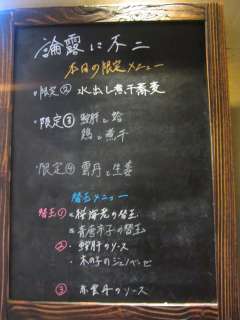 論露に不二
本日の限定メニュー
・限定② 水出し煮干蕎麦
・限定③ 鮟肝と蛤
鶏と煮干
・限定④ 雲丹と生姜
替玉メニュー
替玉① ・桜海老の替玉
・青唐辛子の替玉
② ・鮟肝のソース
・木の子のジェノベーゼ
③ ・赤雲丹のソース